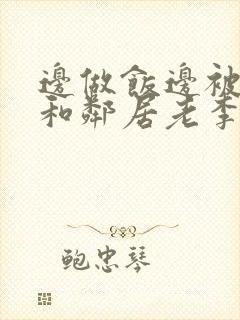 邊做飯邊被
和鄰居老李
鲍忠琴